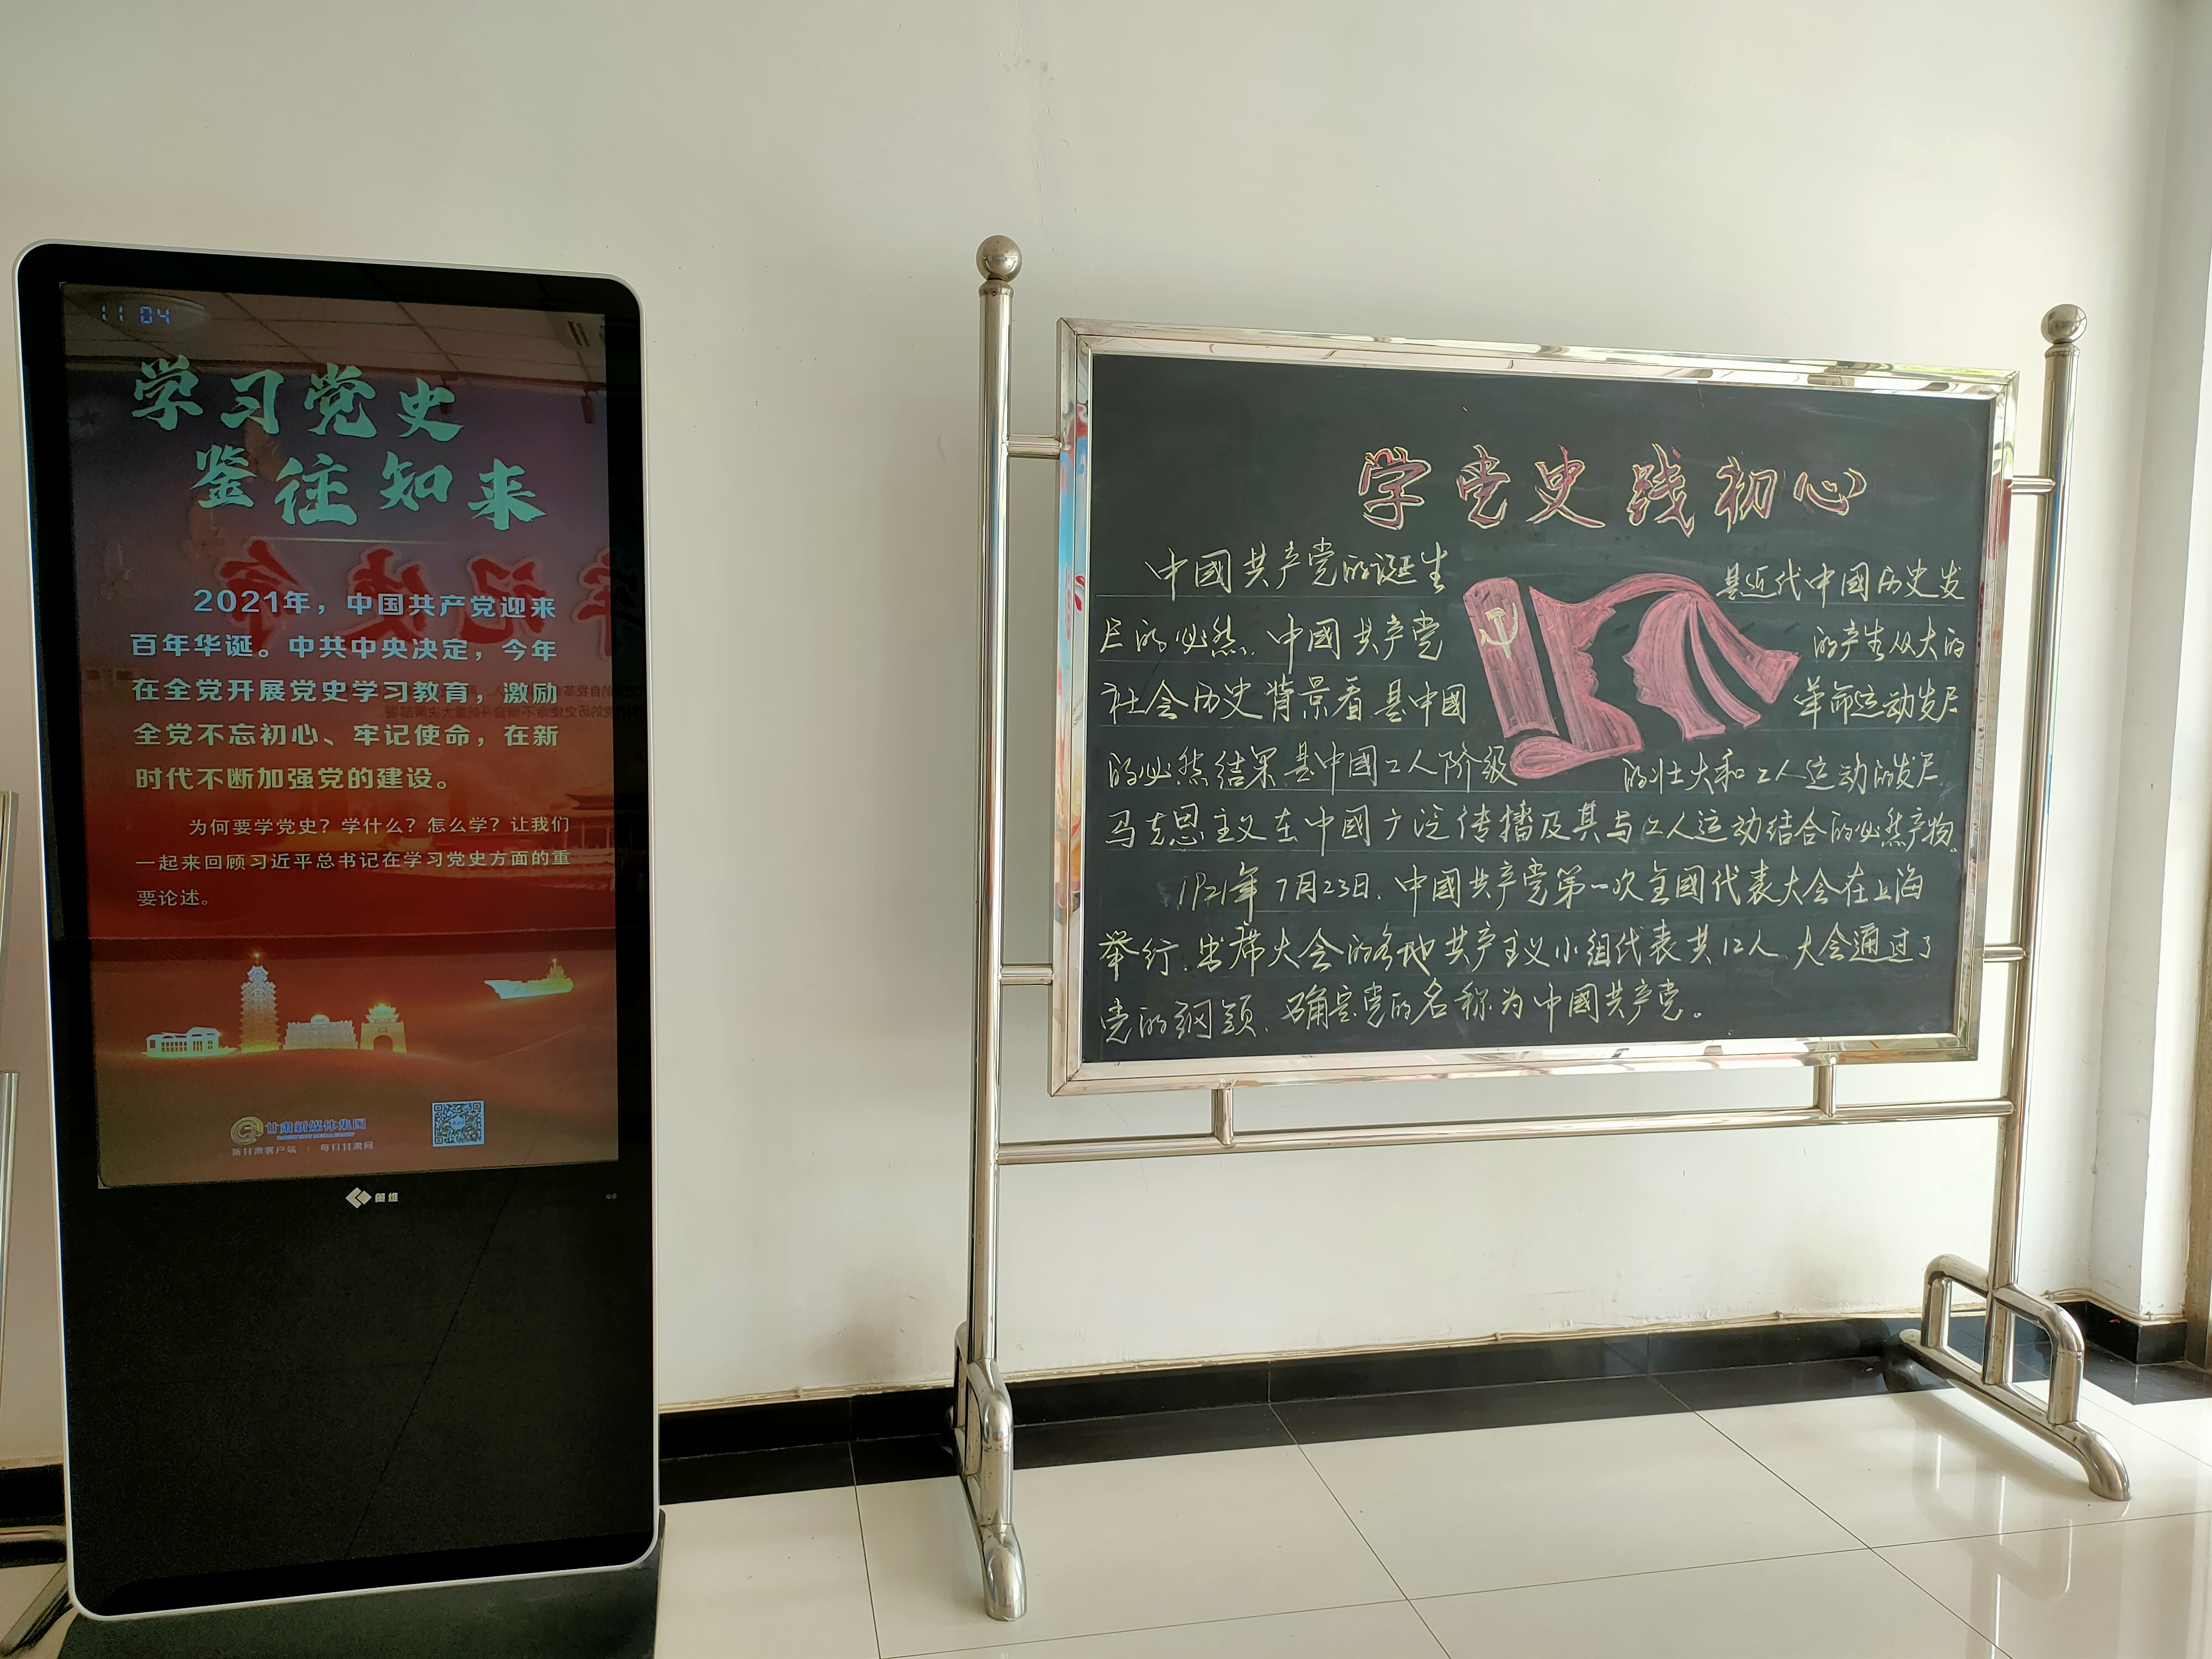 11 04
学习党史
鉴往知来
2021年，中国共产党迎来
百年华诞。中共中央决定，今年
在全党开展党史学习教育，激励
全党不忘初心、牢记使命，在新
时代不断加强党的建设。
为何要学党史？学什么？怎么学？让我们
一起来回顾习近平总书记在学习党史方面的重
要论述。
甘肃新媒体集团
新甘肃客户端 | 每日甘肃网
学党史践初心
中國共产党的诞生是近代中国历史发
展的必然，中國共产党的产生从大的
社会历史背景看是中國革命运动发展
的必然结果是中國工人阶级的壮大和工人运动的发展
马克思主义在中國广泛传播及其与工人运动结合的必然产物。
1921年7月23日，中國共产党第一次全國代表大会在上海
举行，出席大会的各地共产主义小组代表共12人，大会通过了
党的纲领，确定党的名称为中國共产党。